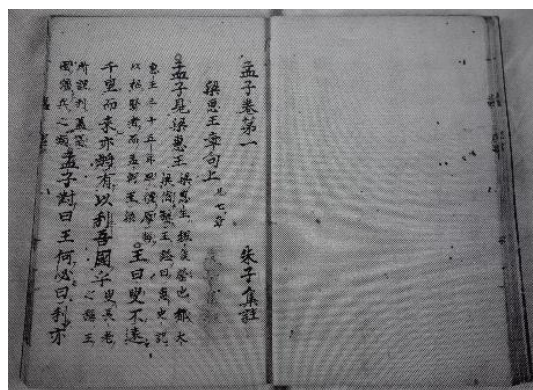 孟子卷第一 朱子集註
梁惠王章句上 凡七章
孟子見梁惠王 梁惠王魏侯罃也都大
梁僭稱王諡曰惠史記
惠王三十五年卑禮厚幣
以招賢者而孟軻至梁 王曰叟不遠
千里而來亦將有以利吾國乎 叟長老
之稱王
所謂利蓋富
國彊兵之類 孟子對曰王何必曰利亦